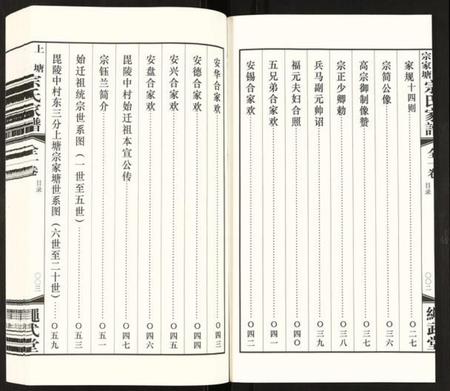 宗家塘宗氏家谱 全一卷 目录 〇〇二 绳武堂
家规十四则 〇二七
宗简公像 〇三六
高宗御制像赞 〇三七
宗正少卿勅 〇三八
兵马副元帅诏 〇三九
福元夫妇合照 〇四〇
五兄弟合家欢 〇四一
安锡合家欢 〇四二
安华合家欢 〇四三
安德合家欢 〇四四
安兴合家欢 〇四五
安盘合家欢 〇四六
毘陵中村始迁祖本宣公传 〇四七
宗钰兰简介 〇五一
始迁祖统宗世系图(一世至五世) 〇五五
毘陵中村东三分上塘宗家塘世系图(六世至二十世) 〇五九
上塘宗氏家谱 全一卷 目录 〇〇三 繩武堂